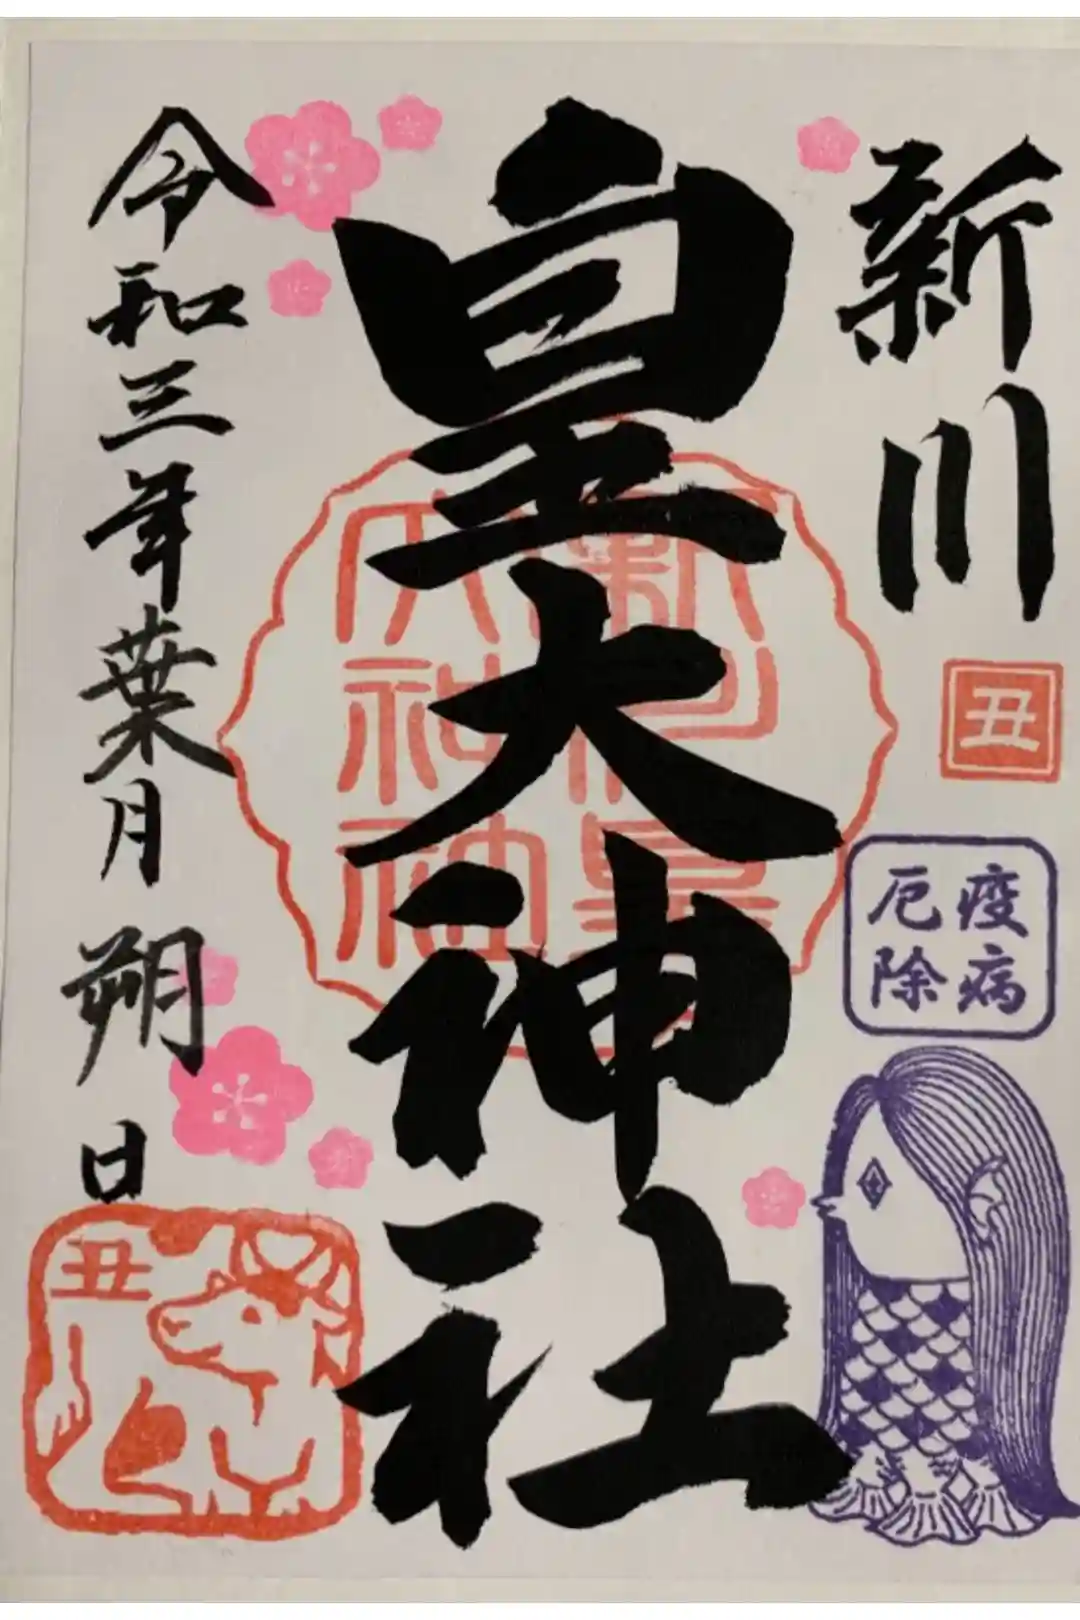 新川
丑
疫病
厄除
皇大神社
新川皇
大神社
令和三年葉月朔日
丑